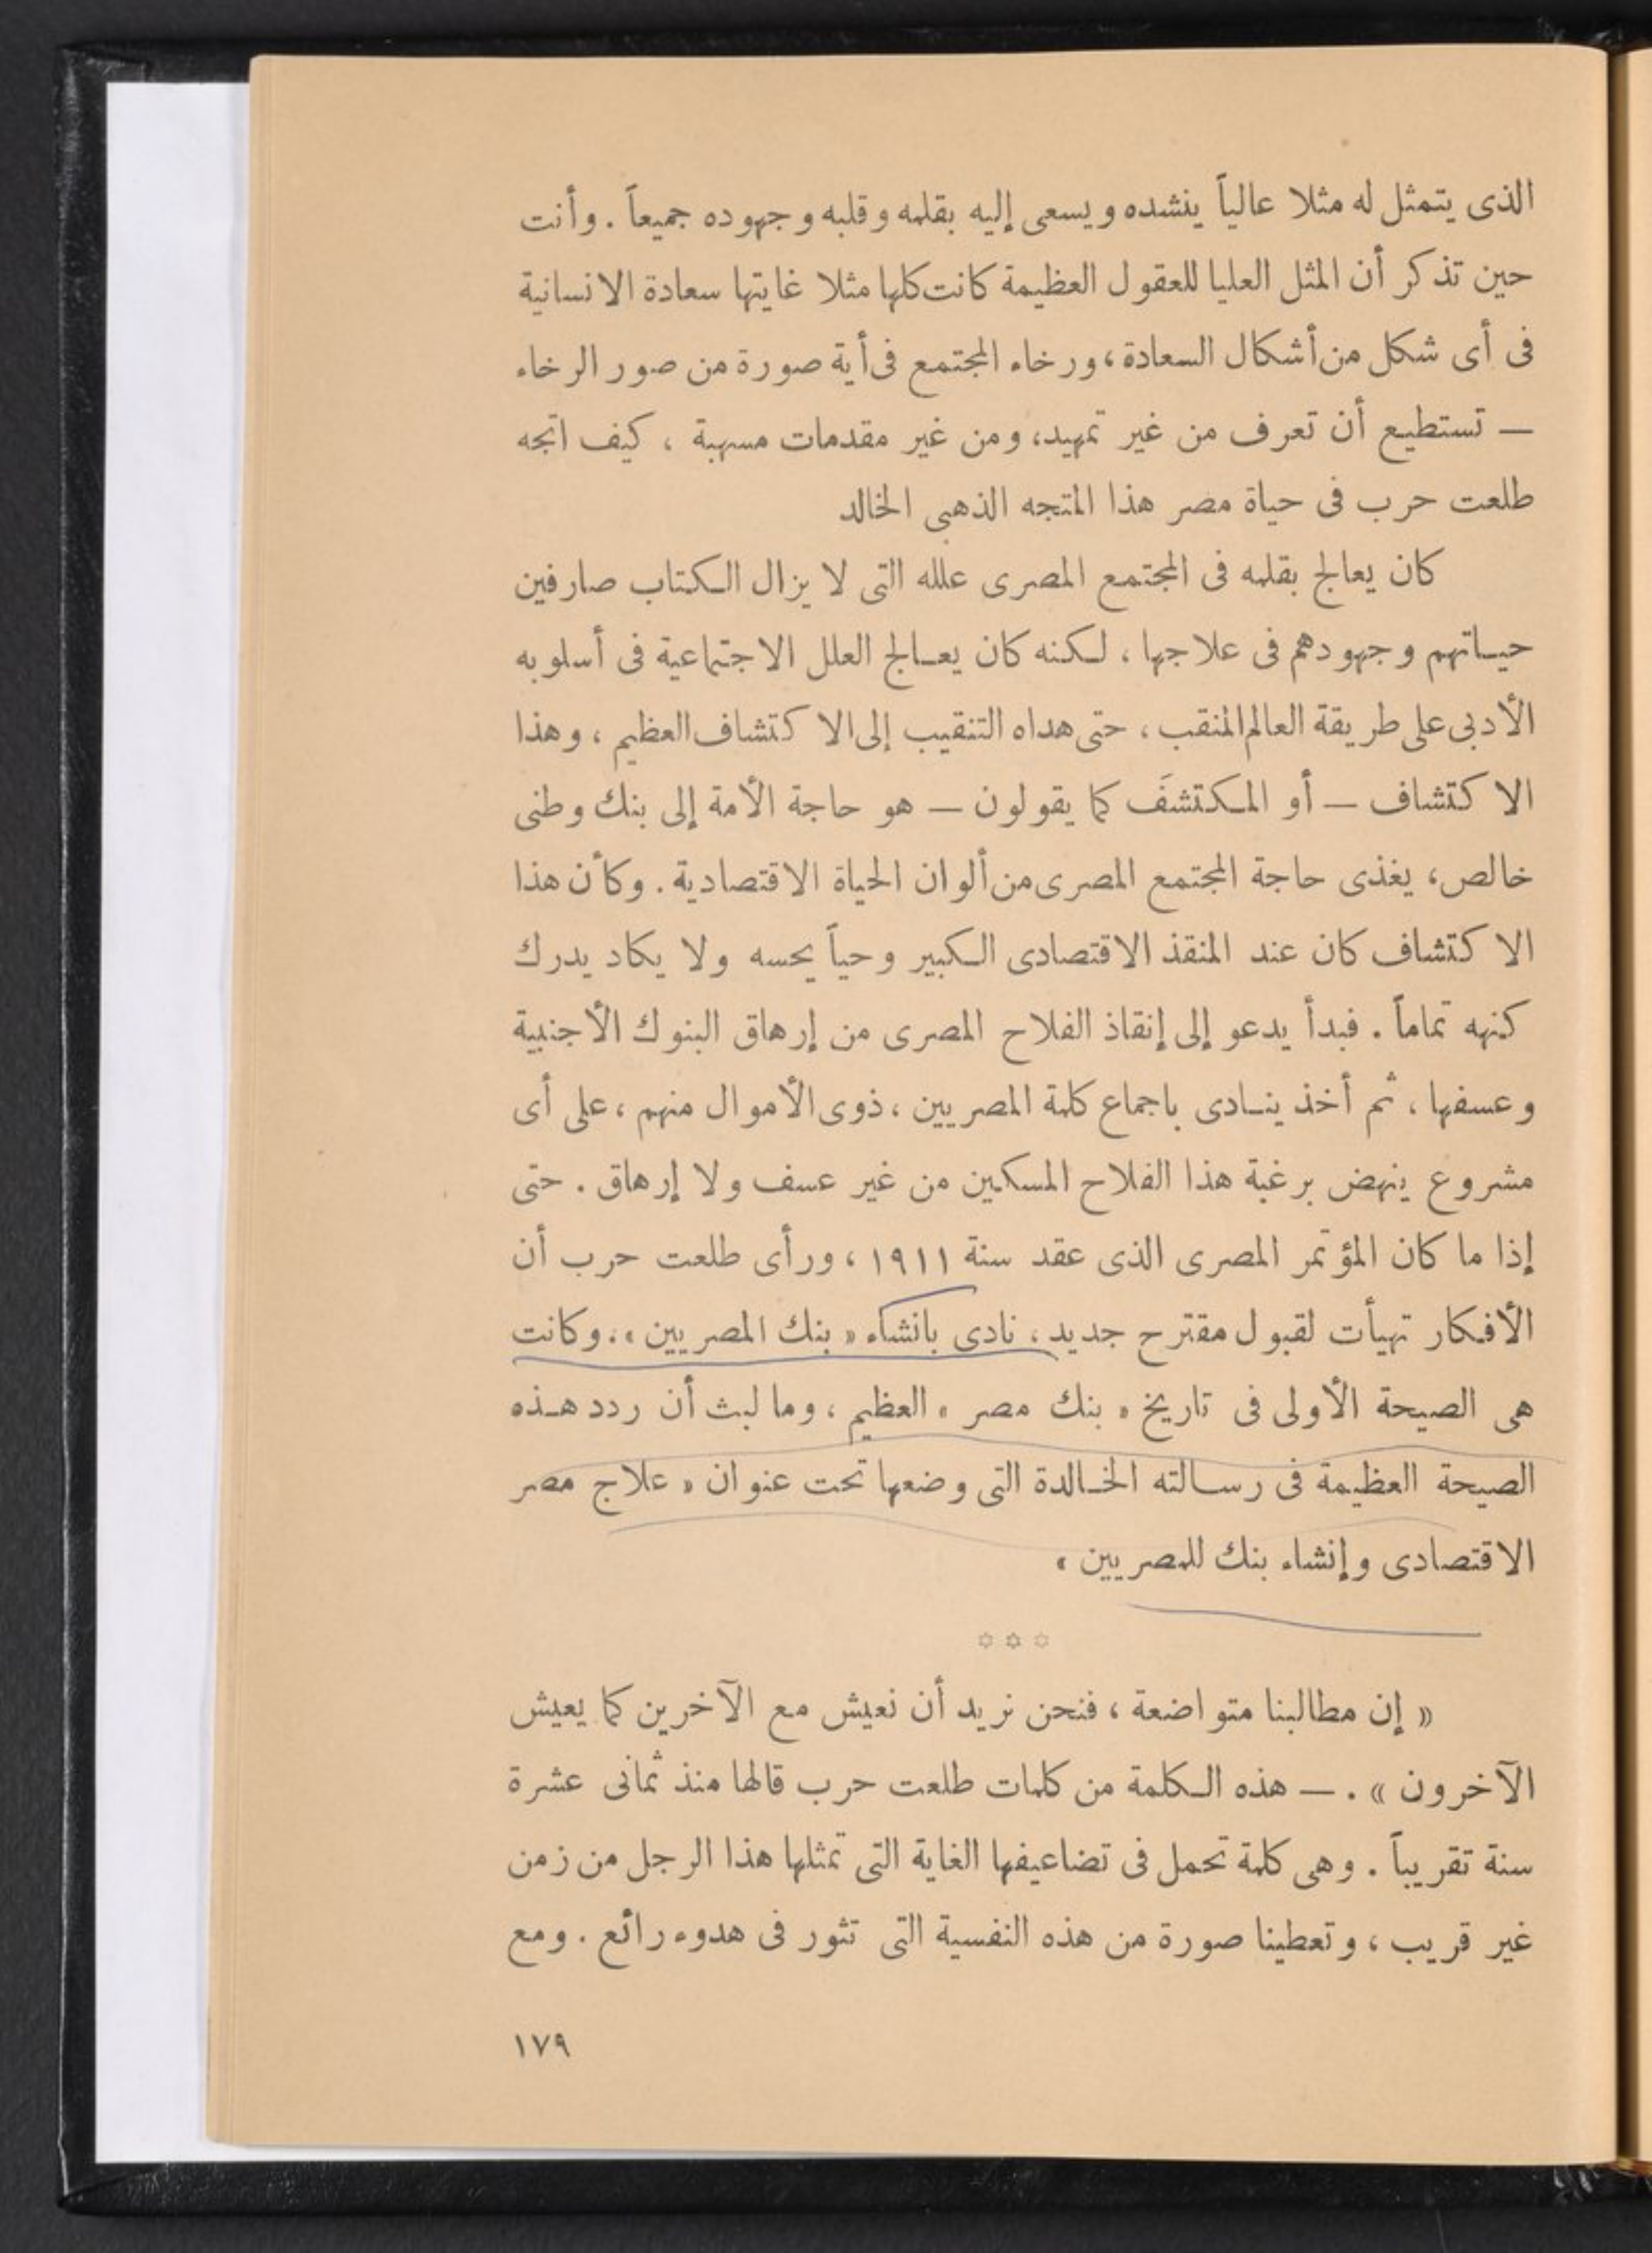 الذى يتمثل له مثلا عالياً ينشده ويسعى إليه بقلمه وقلبه وجهوده جميعاً . وأنت
حين تذكر أن المثل العليا للعقول العظيمة كانت كلها مثلا غايتها سعادة الانسانية
فى أى شكل من أشكال السعادة، ورخاء المجتمع فى أية صورة من صور الرخاء
— تستطيع أن تعرف من غير تمهيد، ومن غير مقدمات مسهبة ، كيف اتجه
طلعت حرب فى حياة مصر هذا المتجه الذهبى الخالد
كان يعالج بقلمه فى المجتمع المصرى علله التى لا يزال الكتاب صارفين
حياتهم وجهودهم فى علاجها ، لكنه كان يعالج العلل الاجتماعية فى أسلوبه
الأدبى على طريقة العالم المنقب ، حتى هداه التنقيب إلى الاكتشاف العظيم ، وهذا
الاكتشاف — أو المكتشَف كما يقولون — هو حاجة الأمة إلى بنك وطنى
خالص، يغذى حاجة المجتمع المصرى من ألوان الحياة الاقتصادية . وكأن هذا
الاكتشاف كان عند المنقذ الاقتصادى الكبير وحياً يحسه ولا يكاد يدرك
كنهه تماماً . فبدأ يدعو إلى إنقاذ الفلاح المصرى من إرهاق البنوك الأجنبية
وعسفها ، ثم أخذ ينادى باجماع كلمة المصريين ، ذوى الأموال منهم ، على أى
مشروع ينهض برغبة هذا الفلاح المسكين من غير عسف ولا إرهاق . حتى
إذا ما كان المؤتمر المصرى الذى عقد سنة ١٩١١ ، ورأى طلعت حرب أن
الأفكار تهيأت لقبول مقترح جديد ، نادى بانشاء « بنك المصريين » ، وكانت
هى الصيحة الأولى فى تاريخ « بنك مصر » العظيم ، وما لبث أن ردد هذه
الصيحة العظيمة فى رسالته الخالدة التى وضعها تحت عنوان « علاج مصر
الاقتصادى وإنشاء بنك للمصريين »
✩ ✩ ✩
« إن مطالبنا متواضعة ، فنحن نريد أن نعيش مع الآخرين كما يعيش
الآخرون » . — هذه الكلمة من كلمات طلعت حرب قالها منذ ثمانى عشرة
سنة تقريباً . وهى كلمة تحمل فى تضاعيفها الغاية التى تمثلها هذا الرجل من زمن
غير قريب ، وتعطينا صورة من هذه النفسية التى تثور فى هدوء رائع . ومع
١٧٩